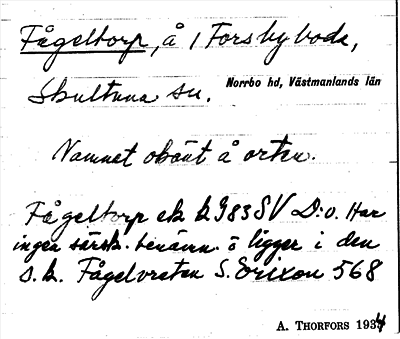 Fågeltorp, å / Forsbyboda,
Skultuna sn. Norrbo hd, Västmanlands län
Namnet okänt å orten.
Fågeltorp ek k 983 SV D:o. Har
ingen särsk. benämn. o ligger i den
s.k. Fågelvreten S. Erixon 568
A. THORFORS 1934